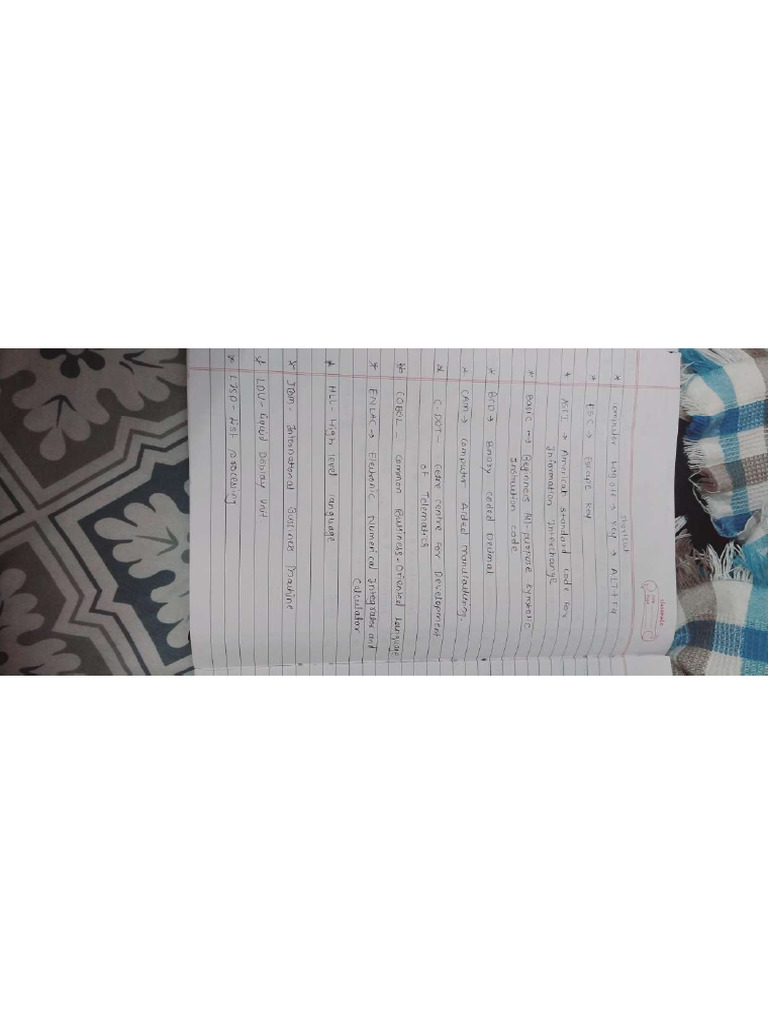 classmate
shortcut
* Computer Log off → Key → ALT+F4
* ESC → Escape Key
* ASCI → American Standard Code for
Information Interchange
* Basic → Beginners All-purpose Symbolic
Instruction code
* BCD → Binary Coded Decimal
* CAM → Computer Aided Manufacturing.
* C.DOT- centre for Development
of Telematics
* COBOL - Common Business-Oriented Language
* ENIAC → Electronic Numerical Integrator and
Calculator
* HLL- High level language
* IBM- International Business Machine
* LDU- Display Unit
* LISP- List processing